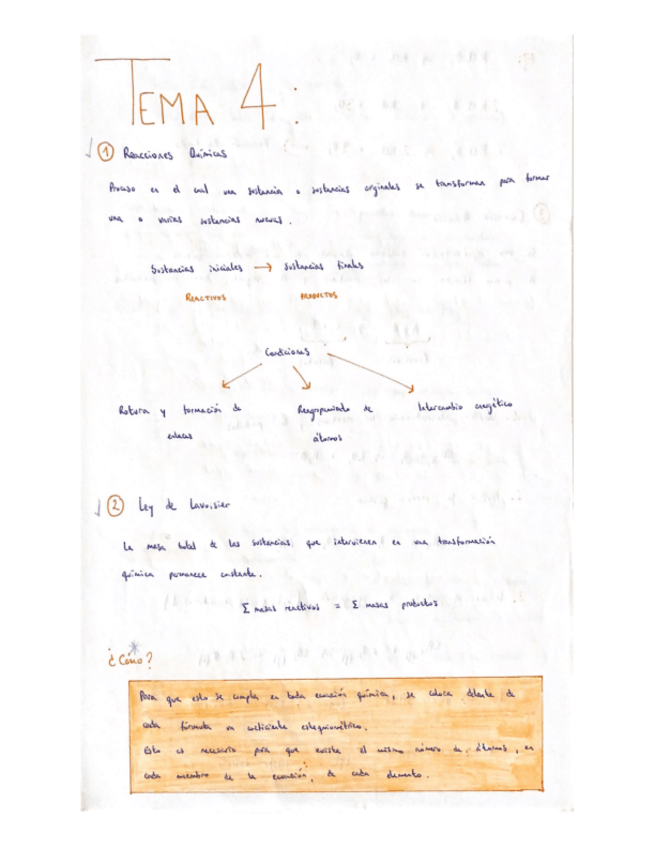 TEMA 4:
① Reacciones Químicas
Proceso en el cual una sustancia o sustancias originales se transforman para formar
una o varias sustancias nuevas.
Sustancias iniciales → Sustancias finales
REACTIVOS PRODUCTOS
Condiciones
Rotura y formación de Reagrupamiento de Intercambio energético
enlaces átomos
② Ley de Lavoisier
La masa total de las sustancias que intervienen en una transformación
química permanece constante.
Σ masas reactivos = Σ masas productos
¿Cómo?
Para que esto se cumpla en toda ecuación química, se coloca delante de
cada fórmula un coeficiente estequiométrico.
Esto es necesario para que exista el mismo número de átomos, en
cada miembro de la ecuación, de cada elemento.